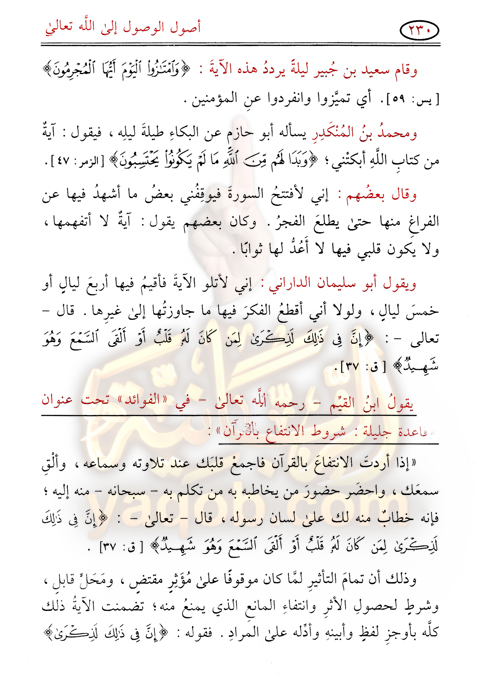 ٢٣٠
أصول الوصول إلى اللَّه تعالىٰ
وقام سعيد بن جُبير ليلةً يرددُ هذه الآيةَ : ﴿وَامْتَازُوا الْيَوْمَ أَيُّهَا الْمُجْرِمُونَ﴾
[يس: ٥٩]. أي تميَّزوا وانفردوا عنِ المؤمنين .
ومحمدُ بنُ المُنْكَدِرِ يسأله أبو حازمٍ عن البكاءِ طيلةَ ليلِه ، فيقول : آيةٌ
من كتابِ اللَّهِ أبكتْني؛ ﴿وَبَدَا لَهُم مِّنَ اللَّهِ مَا لَمْ يَكُونُوا يَحْتَسِبُونَ﴾ [الزمر: ٤٧].
وقال بعضُهم : إني لأفتتحُ السورةَ فيوقِفُني بعضُ ما أشهدُ فيها عن
الفراغِ منها حتىٰ يطلعَ الفجرُ. وكان بعضهم يقول : آيةٌ لا أتفهمها،
ولا يكون قلبي فيها لا أَعُدُّ لها ثوابًا .
ويقول أبو سليمان الداراني : إني لأتلو الآيةَ فأقيمُ فيها أربعَ ليالٍ أو
خمسَ ليالٍ، ولولا أني أقطعُ الفكرَ فيها ما جاوزتُها إلىٰ غيرِها . قال –
تعالى – : ﴿إِنَّ فِي ذَٰلِكَ لَذِكْرَىٰ لِمَن كَانَ لَهُ قَلْبٌ أَوْ أَلْقَى السَّمْعَ وَهُوَ
شَهِيدٌ﴾ [ق: ٣٧].
يقولُ ابنُ القيِّم – رحمه اللَّه تعالىٰ – في «الفوائد» تحت عنوان
قاعدة جليلة : شروط الانتفاع بالقرآن» :
«إذا أردتَ الانتفاعَ بالقرآن فاجمعْ قلبَك عند تلاوته وسماعه ، وألْقِ
سمعَك ، واحضَر حضورَ من يخاطبه به من تكلم به – سبحانه – منه إليه ؛
فإنه خطابٌ منه لك علىٰ لسان رسوله ، قال – تعالىٰ – : ﴿إِنَّ فِي ذَٰلِكَ
لَذِكْرَىٰ لِمَن كَانَ لَهُ قَلْبٌ أَوْ أَلْقَى السَّمْعَ وَهُوَ شَهِيدٌ﴾ [ق: ٣٧] .
وذلك أن تمامَ التأثيرِ لمَّا كان موقوفًا علىٰ مُؤَثرٍ مقتضٍ ، ومَحَلٍّ قابلٍ ،
وشرطٍ لحصولِ الأثرِ وانتفاءِ المانعِ الذي يمنعُ منه؛ تضمنت الآيةُ ذلك
كلَّه بأوجزِ لفظٍ وأبينِهِ وأدلِّه علىٰ المرادِ . فقوله : ﴿إِنَّ فِي ذَٰلِكَ لَذِكْرَىٰ﴾